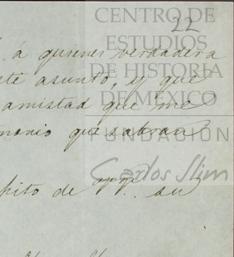 CENTRO DE
22
ESTUDIOS
DE HISTORIA
DE MÉXICO
FUNDACIÓN
Carlos Slim
á quienes verdadera
te asunto, y que
amistad que me
monio que sabran
pito de VV. su